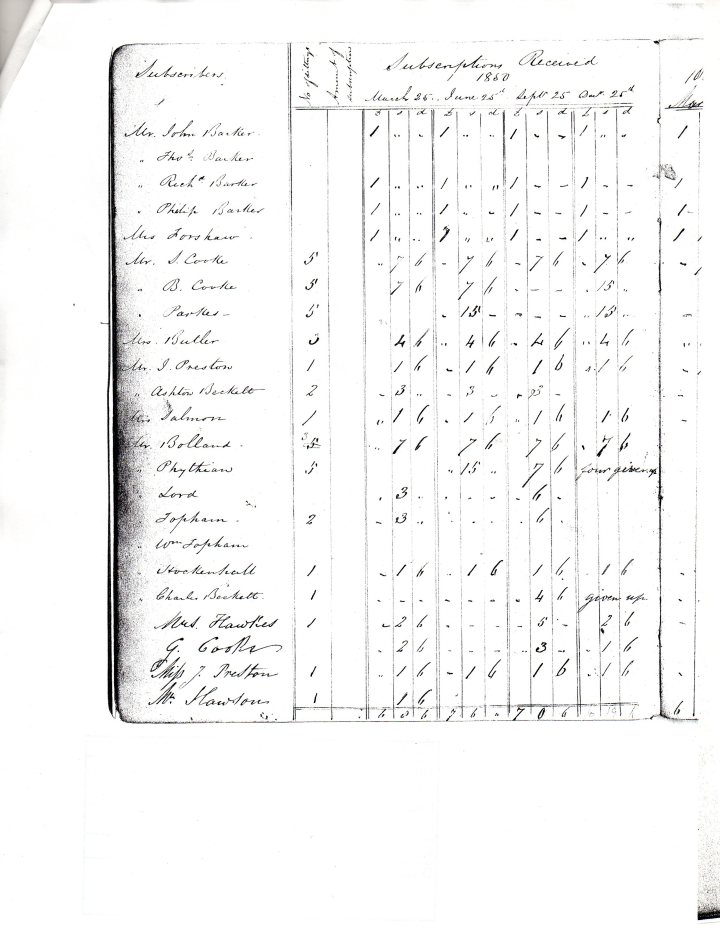 Subscribers
No of sittings
Amount of subscriptions
Subscriptions Received
1850
March 25. June 25th Sept 25 Dec 25th
£ s d £ s d £ s d £ s d
Mr. John Barker 1 " " 1 " " 1 - - 1 " "
" Thos. Barker
" Richd Barker 1 " " 1 " " 1 - - 1 - -
" Philip Barker 1 " " 1 " - 1 - - 1 - -
Mrs Forshaw 1 " " 1 " " 1 - - 1 " "
Mr. S. Cooke 5 " 7 6 - 7 6 - 7 6 - 7 6
" B. Cooke 5 7 6 7 6 - - - " 15 "
" Parkes - 5 - 15 - - - - " 15 -
Mrs. Butler 3 4 6 " 4 6 - 4 6 - 4 6
Mr. J. Preston 1 1 6 - 1 6 1 6 " 1 6
" Ashton Beckett 2 - 3 - - 3 - - 3 -
Mrs Dalmon 1 " 1 6 - 1 6 - 1 6 1 6
Mr Bolland 5 - 7 6 7 6 7 6 - 7 6
" Phythian 5 " 15 " 7 6 four given up
" Lord - 3 - - - - - 6 -
" Topham 2 - 3 - - - - - 6 -
" Wm Topham
" Hockenhull 1 - 1 6 - 1 6 1 6 - 1 6
" Charles Beckett 1 - - - - - - - 4 6 given up
Mrs. Hawkes 1 - 2 6 - - - - 5 - - 2 6
G. Cooke - 2 6 - - - - 3 - - 1 6
Miss J. Preston 1 " 1 6 - 1 6 1 6 - 1 6
Mr Hawson 1 1 6
6 8 6 7 6 " 7 0 6
1
1
1 -
1
6